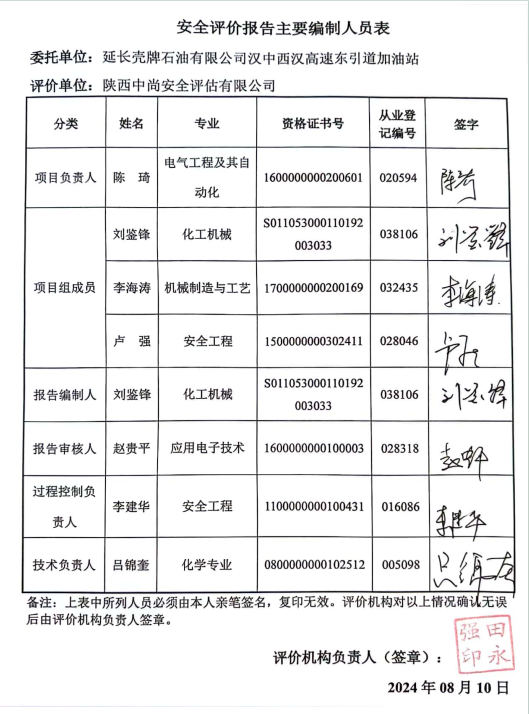 安全评价报告主要编制人员表
委托单位：延长壳牌石油有限公司汉中西汉高速东引道加油站
评价单位：陕西中尚安全评估有限公司
分类 姓名 专业 资格证书号 从业登记编号 签字
项目负责人 陈 琦 电气工程及其自动化 1600000000200601 020594 陈琦
项目组成员 刘鉴锋 化工机械 S011053000110192003033 038106 刘鉴锋
李海涛 机械制造与工艺 1700000000200169 032435 李海涛
卢 强 安全工程 1500000000302411 028046 卢强
报告编制人 刘鉴锋 化工机械 S011053000110192003033 038106 刘鉴锋
报告审核人 赵贵平 应用电子技术 1600000000100003 028318
过程控制负责人 李建华 安全工程 1100000000100431 016086 李建华
技术负责人 吕锦奎 化学专业 0800000000102512 005098
备注：上表中所列人员必须由本人亲笔签名，复印无效。评价机构对以上情况确认无误
后由评价机构负责人签章。
评价机构负责人（签章）：
田永强印
2024 年 08 月 10 日